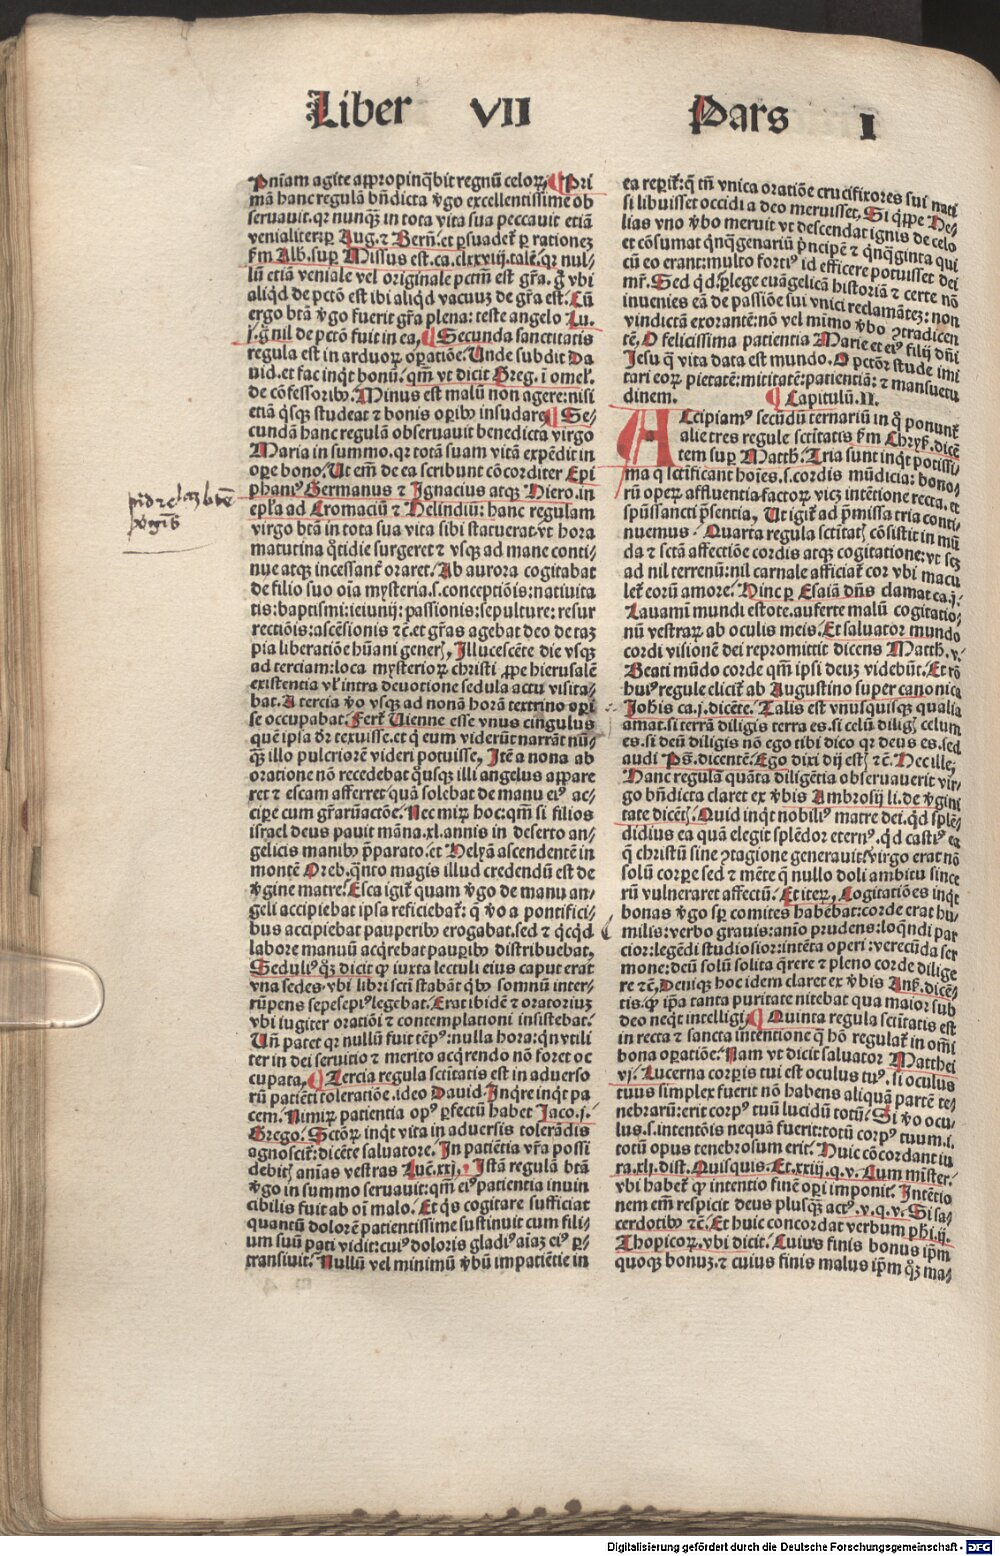 Liber VII
Pars I
Pniam agite appropinq̃bit regnũ celoꝝ. ¶ Pri
mã hanc regulã bñdicta ṽgo excellentissime ob
seruauit. qꝛ nunqꝫ in tota vita sua peccauit etiã
venialiter: ꝑ Aug. ⁊ Berñ. et ꝑsuadet̃ ꝑ rationez
ſm Alb. suꝑ Missus est. ca. clxxviij. talẽ. qꝛ nul⸗
lũ etiã veniale vel originale pctm̃ est gr̃a. g̃ vbi
aliqd de pctõ est ibi aliqd vacuuz de gr̃a est. Cũ
ergo btã ṽgo fuerit gr̃a plena: teste angelo Lu.
j. g̃ nil de pctõ fuit in ea. ¶ Secunda sanctitatis
regula est in arduoꝝ oꝑatiõe. Unde subdit Da
uid. et fac inqt bonũ. qm̃ vt dicit Greg. ĩ omel̃.
de cõfessoribꝰ. Minus est malũ non agere: nisi
etiã qsqꝫ studeat ⁊ bonis opibꝰ insudare. ¶ Se⸗
cundã hanc regulã obseruauit benedicta virgo
Maria in summo. qꝛ totã suam vitã expẽdit in
oꝑe bono. Ut em̃ de ea scribunt cõcorditer Epi
phaniꝰ Germanus ⁊ Ignacius atqꝫ Hiero. in
epl̃a ad Cromaciũ ⁊ Helindiũ: hanc regulam
virgo btã in tota sua vita sibi statuerat. vt hora
matutina q̃tidie surgeret ⁊ vsqꝫ ad mane conti⸗
nue atqꝫ incessant̃ oraret. Ab aurora cogitabat
de filio suo oĩa mysteria. s. conceptiõis: natiuita
tis: baptismi: ieiunij: passionis: sepulture: resur
rectiõis: ascẽsionis ⁊c̃. et gr̃as agebat deo de taz
pia liberatiõe hũani generꝭ. Illucescẽte die vsqꝫ
ad terciam: loca mysterioꝝ christi ꝓpe hierusalẽ
existentia vl̃ intra deuotione sedula actu visita⸗
bat. A tercia ṽo vsqꝫ ad nonã horã textrino opi
se occupabat. Fert̃ Uienne esse vnus cingulus
quẽ ipsa dr̃ texuisse. et q̃ eum viderũt narrãt nũ⸗
qꝫ illo pulcriorẽ videri potuisse. Itẽ a nona ab
oratione nõ recedebat qusqꝫ illi angelus appare
ret ⁊ escam afferret quã solebat de manu eiꝰ ac⸗
ciꝑe cum gr̃aruactõe. Nec miꝝ hoc: qm̃ si filios
israel deus pauit mãna. xl. annis in deserto an⸗
gelicis manibꝰ p̃parato. et Helyã ascendentẽ in
montẽ Oreb. q̃nto magis illud credendũ est de
ṽgine matre. Esca igit̃ quam ṽgo de manu an⸗
geli accipiebat ipsa reficiebat̃: q̃ ṽo a pontifici⸗
bus accipiebat pauperibꝰ erogabat. sed ⁊ qcqd
labore manuũ acqrebat pauꝑibꝰ distribuebat.
Seduliꝰ qꝫ dicit ꝙ iuxta lectuli eius caput erat
vna sedes. vbi libri scti stabãt qbꝰ somnũ inter⸗
rũpens sepesepiꝰ legebat. Erat ibidẽ ⁊ oratoriuz
vbi iugiter oratiõi ⁊ contemplationi insistebat.
Un̄ patet qꝛ nullũ fuit tẽpꝰ: nulla hora: qn vtili
ter in dei seruitio ⁊ merito acqrendo nõ foret oc
cupata. ¶ Tercia regula sctitatis est in aduerso
rũ patiẽti toleratiõe. ideo Dauid. Inqre inqt pa
cem. Nimiꝝ patientia opꝰ ꝑfectũ habet Jaco. j.
Grego. Sctõꝝ inqt vita in aduersis tolerãdis
agnoscit̃: dicẽte saluatore. In patiẽtia vr̃a possi
debitꝭ aniãs vestras Luc̃. xxj. Istã regulã btã
ṽgo in summo seruauit: qm̃ eiꝰ patientia inuin
cibilis fuit ab oi malo. Et qs cogitare sufficiat
quantũ dolorẽ patientissime sustinuit cum fili⸗
um suũ pati vidit: cuiꝰ doloris gladiꝰ aĩaz eiꝰ ꝑ⸗
transiuit. Nullũ vel minimũ ṽbũ impatiẽtie in
ea reꝑit̃: q̃ tñ vnica oratiõe crucifixores sui nati
si libuisset occidi a deo meruisset. Si qppe He⸗
lias vno ṽbo meruit vt descendat ignis de celo
et cõsumat qnqgenariũ pncipẽ ⁊ qnqginta qui
cũ eo erant: multo fortiꝰ id efficere potuisset dei
mr̃. Sed qd. ꝑlege euãgelicã historiã ⁊ certe nõ
inuenies eã de passiõe sui vnici reclamãtez: non
vindictã exorantẽ: nõ vel mĩmo ṽbo ꝯtradicen
tẽ. O felicissima patientia Marie et eiꝰ filij dñi
Iesu q̃ vita data est mundo. O pctõr stude imi
tari eoꝝ pietatẽ: mititatẽ: patientiã: ⁊ mansuetu
dinem. ¶ Capitulũ. II.
ACcipiamꝰ secũdũ ternariũ in q̃ ponunt̃
alie tres regule sctitatis ſm Chrys̃. dicẽ
tem suꝑ Matth̃. Tria sunt inqt potissi
ma q̃ sctificant hoĩes. s. cordis mũdicia: bono⸗
rũ opeꝝ affluentia factoꝝ vicz intẽtione recta. et
spũssancti p̃sentia. Ut igit̃ ad p̃missa tria conti
nuemus. Quarta regula sctitatꝭ cõsistit in mũ
da ⁊ sctã affectiõe cordis atqꝫ cogitatione: vt scz
ad nil terrenũ: nil carnale afficiat̃ cor vbi macu
let̃ eorũ amore. Hinc ꝑ Esaiã dñs clamat ca. j.
Lauamĩ mundi estote. auferte malũ cogitatio⸗
nũ vestraꝝ ab oculis meis. Et saluator mundo
cordi visionẽ dei repromittit dicens Matth. v.
Beati mũdo corde qm̃ ipsi deuz videbũt. Et rõ
huiꝰ regule elicit̃ ab Augustino super canonica
Joh̃is ca. j. dicẽte. Talis est vnusquisqꝫ qualia
amat. si terrã diligis terra es. si celũ diligꝭ celum
es. si deũ diligis nõ ego tibi dico qꝛ deus es. sed
audi Ps̃. dicentẽ. Ego dixi dij estꝭ ⁊c̃. Hec ille.
Hanc regulã quãta diligẽtia obseruauerit vir⸗
go bñdicta claret ex ṽbis Ambrosij li. de ṽgini
tate dicẽtꝭ. Quid inqt nobiliꝰ matre dei. qd splẽ⸗
didius ea quã elegit splẽdor eternꝰ. qd castiꝰ ea
q̃ christũ sine ꝯtagione generauit. virgo erat nõ
solũ corꝑe sed ⁊ mẽte q̃ nullo doli ambitu since
rũ vulneraret affectũ. Et iteꝝ. Cogitatiões inqt
bonas ṽgo sꝑ comites habebat: corde erat hu⸗
milis: verbo grauis: anĩo prudens: loqndi par
cior: legẽdi studiosior: intẽta operi: verecũda ser
mone: deũ solũ solita qrere ⁊ pleno corde dilige
re ⁊c̃. Deniqꝫ hoc idem claret ex ṽbis Ans̃. dicẽ⸗
tis. ꝙ ip̃a tanta puritate nitebat qua maior sub
deo neqt intelligi. ¶ Quinta regula sctitatis est
in recta ⁊ sancta intentione q̃ hõ regulat̃ in om̃i
bona oꝑatiõe. Nam vt dicit saluator Matthei
vj. Lucerna corꝑis tui est oculus tuꝰ. si oculus
tuus simplex fuerit nõ habens aliquã partẽ te⸗
nebrarũ: erit corpꝰ tuũ lucidũ totũ. Si ṽo ocu⸗
lus. s. intentõis nequã fuerit: totũ corpꝰ tuum. i.
totũ opus tenebrosum erit. Huic cõcordant iu
ra. xlj. dist. Quisquis. Et. xxiij. q. v. Cum mĩster.
vbi habet̃ ꝙ intentio finẽ oꝑi imponit. Intẽtio
nem em̃ respicit deus plusqꝫ actꝰ. v. q. v. Si sa⸗
cerdotibꝰ ⁊c̃. Et huic concordat verbum ph̃i. ij.
Thopicoꝝ. vbi dicit. Cuiꝰ finis bonus ip̃m
quoqꝫ bonuz. ⁊ cuius finis malus ip̃m qꝫ ma⸗
Digitalisierung gefördert durch die Deutsche Forschungsgemeinschaft - DFG